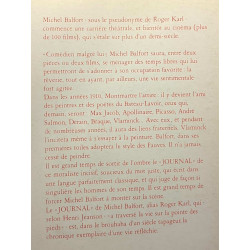 Michel Balfort - sous le pseudonyme de Roger Karl
commence une carrière théâtrale, et bientôt au cinéma (plus
de 100 films), qui s'étale sur plus d'un demi-siècle.
«Comédien malgré lui» Michel Balfort saura, entre deux
pièces ou deux films, se ménager des temps libres qui lui
permettront de s'adonner à son occupation favorite : la
rêverie, tout en ayant, par ailleurs, une vie sentimentale
fort agitée.
Dans les années 1910, Montmartre l'attire : il y devient l'ami
des peintres et des poètes du Bateau-Lavoir, ceux qui, alors,
ont nom Max Jacob, Apollinaire, Picasso, André
Salmon, Derain, Braque, Vlaminck... Avec eux, et pendant
de nombreuses années, il aura des liens étroits. Vlaminck
l'incitera même à s'essayer à la peinture. Balfort, dans ses
premières toiles adoptera le style des Fauves. Il n'a cessé
de peindre.
Il est grand temps de sortir de l'ombre le «JOURNAL» de
ce moraliste incisif, soucieux de mes amis, qui écrit dans
une langue parfaitement classique, et qui juge de façon si
singulière les hommes de son temps. Il est grand temps de
forcer Michel Balfort à monter sur la scène.
Le «JOURNAL» de Michel Balfort, alias Roger Karl, qui -
selon Henri Jeanson - «a traversé la vie sur la pointe des
pieds», est, dans le brouhaha d'un siècle tapageur la
chronique exemplaire d'une vie réfléchie.